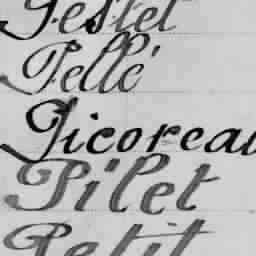 Pellé
Picoreau
Pilet
Petit